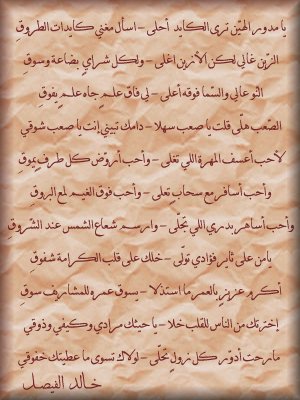 يا مدور الهيّن ترى الكايد أحلى - اسأل مغني كايدات الطروقِ
الزين غالي لكن الأزين اغلى - ولكل شراي بضاعة وسوقِ
الثو عالي والسّما فوقه أعلى - لي فاق علم جاه علم يفوقِ
الصّعب هلّى قلت يا صعب سهلا - دامك تبيني إنت يا صعب شوقي
لاحب اعسف المهرة اللي تغلى - وأحب أروّض كل طرف يموقِ
وأحب أسافر مع سحاب تعلى - وأحب فوق الغيم لمع البروقِ
وأحب أساهر بدري اللي تجلّى - وارسم شعاع الشمس عند الشروقِ
يا من على ثاير فؤادي تولى - خلك على قلب الكرامة شفوقِ
أكرم عزيزٍ بالعمر ما استذلا - يسوق عمره للمشاريف سوقِ
إخترتك من الناس للقلب خلا - يا حبك مرادي وكيفي وذوقي
ما رحت أدوّر كل نزول تخلّى - لولاك تسوى ما عطيتك خفوقي
خالد الفيصل